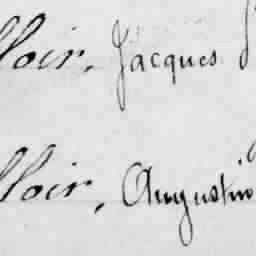 lloir, Jacques
lloir, Augustin